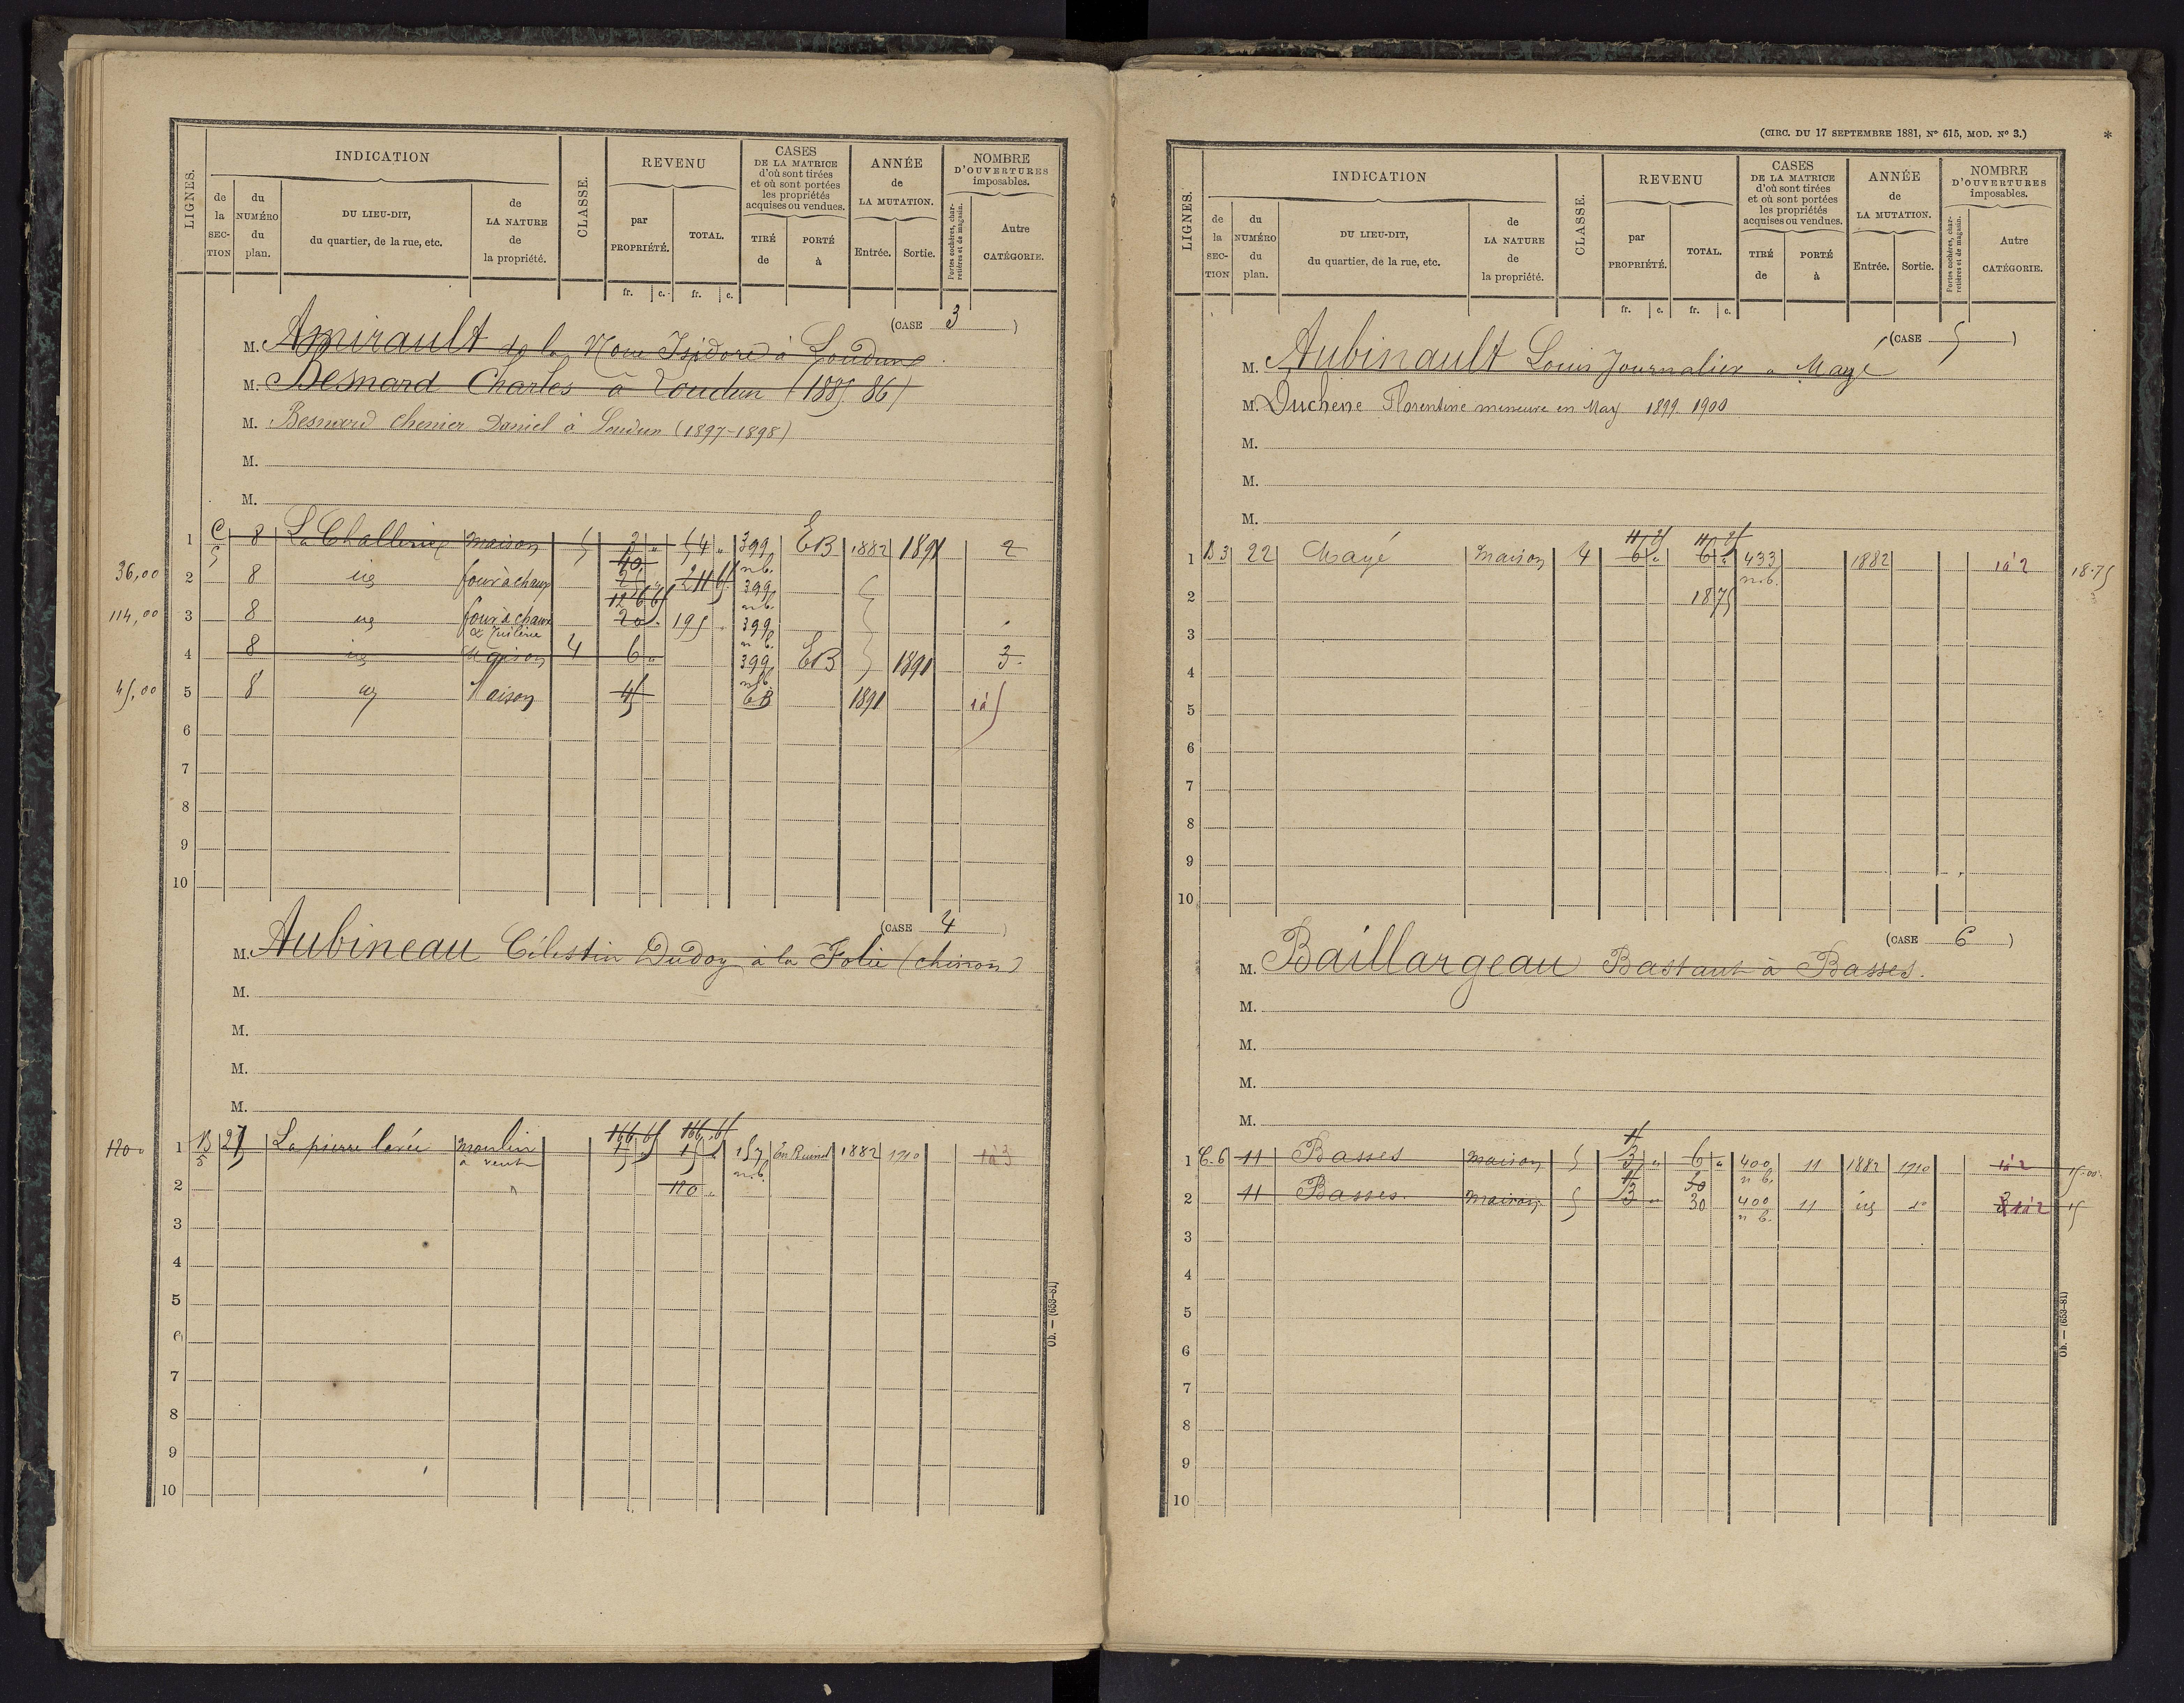 INDICATION
CLASSE.
REVENU
CASES
DE LA MATRICE
d'où sont tirées
et où sont portées
les propriétés
acquises ou vendues.
ANNÉE
de
LA MUTATION.
NOMBRE
D'OUVERTURES
imposables.
LIGNES.
de la SECTION
du NUMÉRO du plan.
DU LIEU-DIT,
du quartier, de la rue, etc.
de LA NATURE de la propriété.
par PROPRIÉTÉ.
TOTAL.
TIRÉ de
PORTÉ à
Entrée.
Sortie.
Portes cochères, charretières et de magasin.
Autre CATÉGORIE.
fr. c. fr. c.
(CASE 3)
M. Amirault de la Isidore à Loudun
M. Besnard Charles à Loudun (1885 86)
M. Besnard Chenier Daniel à Loudun (1897-1898)
M.
M.
1 C 5 8 maison 5 54 399 EB 1882 1891 2
n.b.
36,00 2 8 four à chaux 399
n.b.
114,00 3 8 four à chaux 20 195 399
& Tuilerie n.b.
4 8 Maison 4 6 399 EB 1891 3
n.b.
45,00 5 8 Maison 45 EB 1891 1 à 5
6
7
8
9
10
(CASE 4)
M. Aubineau Célestin à la Folie (chinon)
M.
M.
M.
M.
166,65 166,65
120 1 B 5 27 La pierre levée moulin à vent 15 157 En Ruines 1882 1910 1 à 3
n.b.
2 120
3
4
5
6
7
8
9
10
Ob. — (653-81)
(CIRC. DU 17 SEPTEMBRE 1881, N° 615, MOD. N° 3.)
*
INDICATION
CLASSE.
REVENU
CASES
DE LA MATRICE
d'où sont tirées
et où sont portées
les propriétés
acquises ou vendues.
ANNÉE
de
LA MUTATION.
NOMBRE
D'OUVERTURES
imposables.
LIGNES.
de la SECTION
du NUMÉRO du plan.
DU LIEU-DIT,
du quartier, de la rue, etc.
de LA NATURE de la propriété.
par PROPRIÉTÉ.
TOTAL.
TIRÉ de
PORTÉ à
Entrée.
Sortie.
Portes cochères, charretières et de magasin.
Autre CATÉGORIE.
fr. c. fr. c.
(CASE 5)
M. Aubinault Louis Journalier à Mayé
M. Duchene Florentine mineure en May 1899 1900
M.
M.
M.
1 B 3 22 Mayé maison 4 6 6 433 1882 1 à 2 18.75
n.b.
2 18 75
3
4
5
6
7
8
9
10
(CASE 6)
M. Baillargeau Bastault à Basses.
M.
M.
M.
M.
1 C. 6 11 Basses maison 5 3 6 400 11 1882 1910 1 à 2 15.00
n b.
2 11 Basses maison 5 3 30 400 11 1 à 2 15
n b.
3
4
5
6
7
8
9
10
Ob. — (653-81)